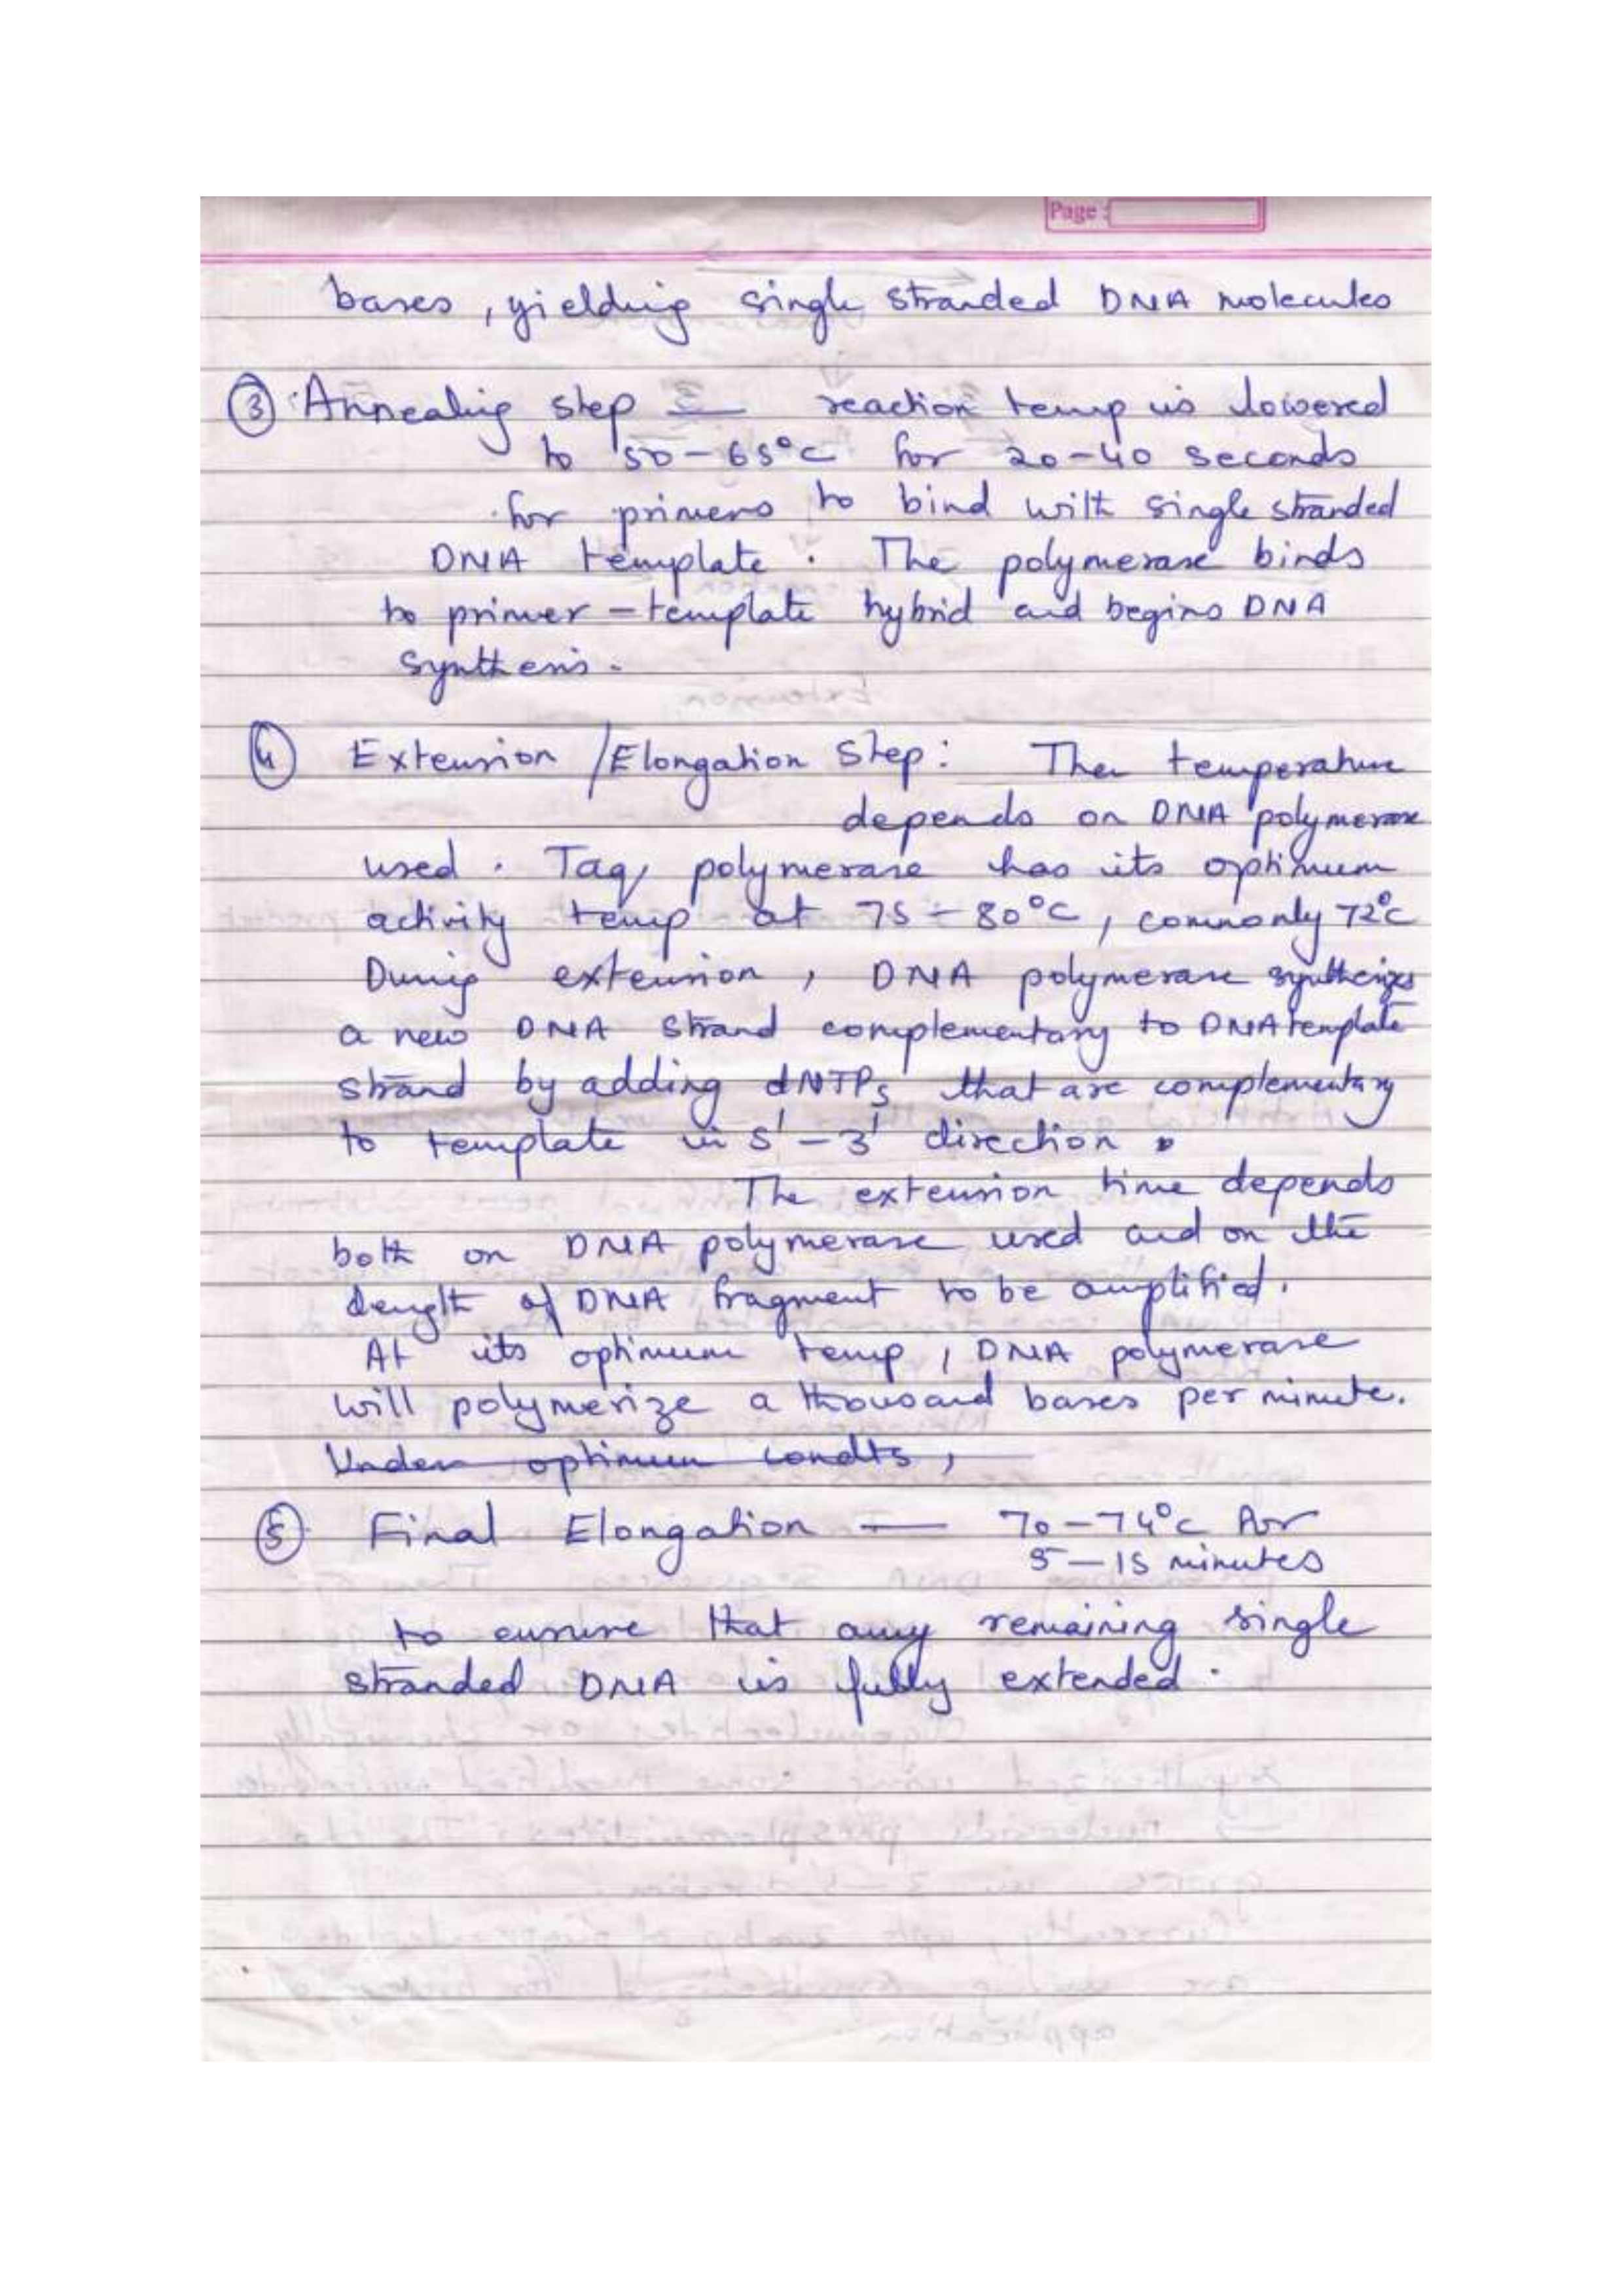 Page :
bases, yielding single stranded DNA molecules
③ Annealing step — reaction temp is lowered
to 50-65°C for 20-40 seconds
for primers to bind with single stranded
DNA template. The polymerase binds
to primer-template hybrid and begins DNA
synthesis.
④ Extension/Elongation Step: The temperature
depends on DNA polymerase
used. Taq polymerase has its optimum
activity temp at 75-80°C, commonly 72°C
During extension, DNA polymerase synthesizes
a new DNA strand complementary to DNA template
strand by adding dNTPs that are complementary
to template in 5'-3' direction.
The extension time depends
both on DNA polymerase used and on the
length of DNA fragment to be amplified.
At its optimum temp, DNA polymerase
will polymerize a thousand bases per minute.
Under optimum condts,
⑤ Final Elongation — 70-74°C for
5-15 minutes
to ensure that any remaining single
stranded DNA is fully extended.